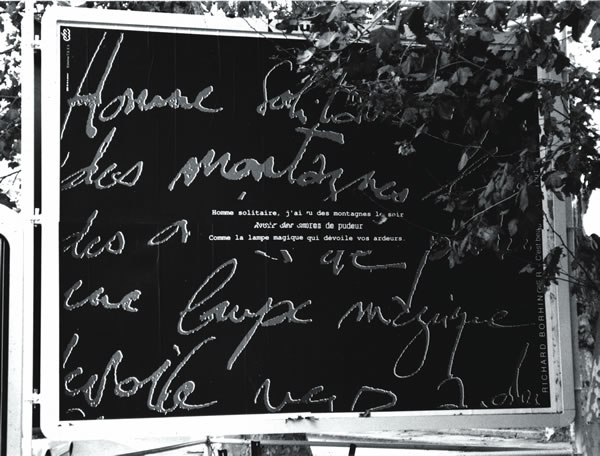 Homme Solitaire
des montagnes
Homme solitaire, j'ai vu des montagnes le soir
Avoir des ombres de pudeur
Comme la lampe magique qui dévoile vos ardeurs.
des
lampe magique
dévoile vos
RICHARD